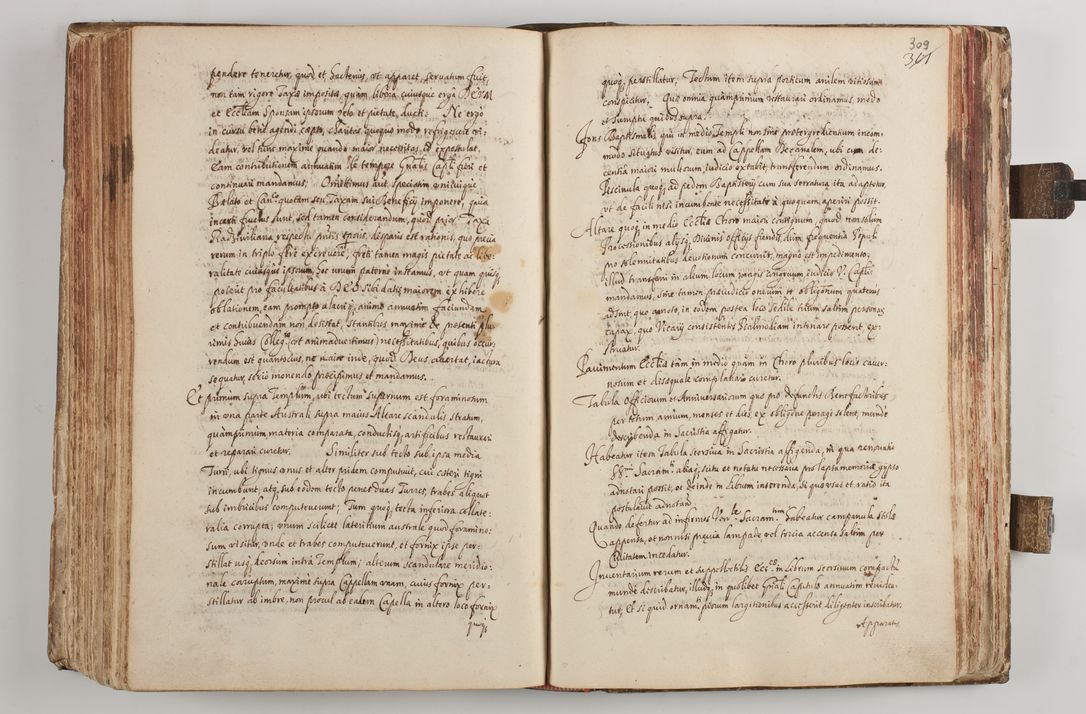 pendere teneretur, quod et hactenus, ut apparet, servatum fuit,
non tam rigore Taxae imposita, quam libera cuiusque erga DEUM
et Eccl'iam Sponsam ipsorum zelo et pietate, ducti. Ne ergo
in cursu bene agendi capto, charitas quoquo modo refrigescere vi:
deatur, vel tunc maxime quando maior necessitas id expostulat,
Eam contributionem annuatim tempore Gn'alis Cap'li fieri et
continuari mandamus. Omittimus aut speciatim unicuique
Praelato et Can'co quotam seu Taxam sui Beneficij imponere, quia
incerti fructus sunt, sed tamen considerandum, quod prior Taxa
Radziviliana respectu p'ntis t'poris, disparis est rationis, quo precia
rerum in triplo fere excrevere, freti tamen magis pietate ac libe:
ralitate cuiusque ipsorum, hoc unum paterne instamus, ut quam quisq,
polleat pro facultatibus a DEO sibi datis, maiorem exhibere
oblationem, eam prompto alacriq, animo annuatim faciundam
et contribuendam non desistat, stantibus maxime de presenti plu
rimis huius Colleg'tae (ut animadvertimus) necessitatibus, quibus occur:
rendum est quantocius, ne maior inde, quod Deus avertat, iactura
sequatur, serio monendo praecipimus et mandamus.
Et primum supra Templum, ubi tectum supernum est foraminosum
in una parte Australi supra maius Altare scandulis stratum,
quamprimum materia comparata, conductisq, artificibus restaurari
et reparari curetur. Similiter sub tecto sub ipsa media
Turri, ubi tignus unus et alter pridem computruit, cui caeteri tigni
incumbunt, atq, sub eodem tecto penes duas Turres, trabes aliquot
sub imbricibus computruerunt; Tum quoq, tecta inferiora collate:
ralia corrupta; unum scilicet lateritium australe quod foramino:
sum visitur, unde et trabes computruerunt, et fornix ipse per:
stillat usq, deorsum intra Templum; alterum scandulare meridio:
nale corruptum, maxime supra Cappellam unam, cuius fornix per:
stillatur ab imbre, non procul ab eadem Capella in altero loco fornix
quoq,
309
301
quoq, perstillatur, Tectum item supra porticum anilem vitiosum
conspicitur. Quae omnia quamprimum restaurari ordinamus, modo
et sumptu quibus supra.
Fons Baptismalis qui in medio Templi non sine praetergredientium incom:
modo situatus visitur, eum ad Cappellam Decanalem, ubi cum de:
centia maiori multorum iudicio extabit, transferendum ordinamus.
Piscinula quoq, ad pedem Baptisterij cum sua serratura ita adaptetur,
ut de facili nisi incumbente necessitate a quoquam aperiri possit.
Altare quoq, in medio Eccl'iae Choro maiori contiguum, quod non solum
Processionibus alijsq, Divinis officijs fiendis, dum frequentia Populi
pro solemnitatibus devotionum concurrit, magno est impedimento;
illud transferri in alium locum magis congruum, iudicio V. Cap'li
mandamus, sine tamen praeiudicio onerum et obligationum quatenus
adsint, quo amoto, in eodem postea loco sedile trium saltim personarum
capax, quo Vicarij consistentes Psalmodiam intonare possent, ex:
struatur.
Pavimentum Eccl'iae tam in medio quam in Choro pluribus locis caver:
nosum et disaequale complanari curetur.
Tabula Officiorum et Anniversariorum quae pro defunctis Benefactoribus,
per totum annum, menses et dies, ex obligatione peragi solent, munde
describenda in Sacristia affigatur.
Habeatur item Tabula seorsiva in Sacristia affigenda, in qua renovatio
SS'mi Sacram'ti aliaq, scitu et notatu necessaria pro lapsu memoriae gypso
adnotari possit, et deinde in Librum inserenda, si quae usus et ratio ita
postulaverit adnotari.
Quando defertur ad infirmos Ven'le Sacram'tum habeatur campanula stolae
appensa, et non nisi praevia lampade vel torcia accensa saltim per
Civitatem incedatur.
Inventarium rerum et supellectilis Ecc'cae in Librum seorsivum compactum
munde describatur, illudq, in quolibet Gn'ali Capitulo annuatim revidea:
tur, Et si quid ornam: piorum largitionibus accesserit, diligenter inscribatur.
Apparatus